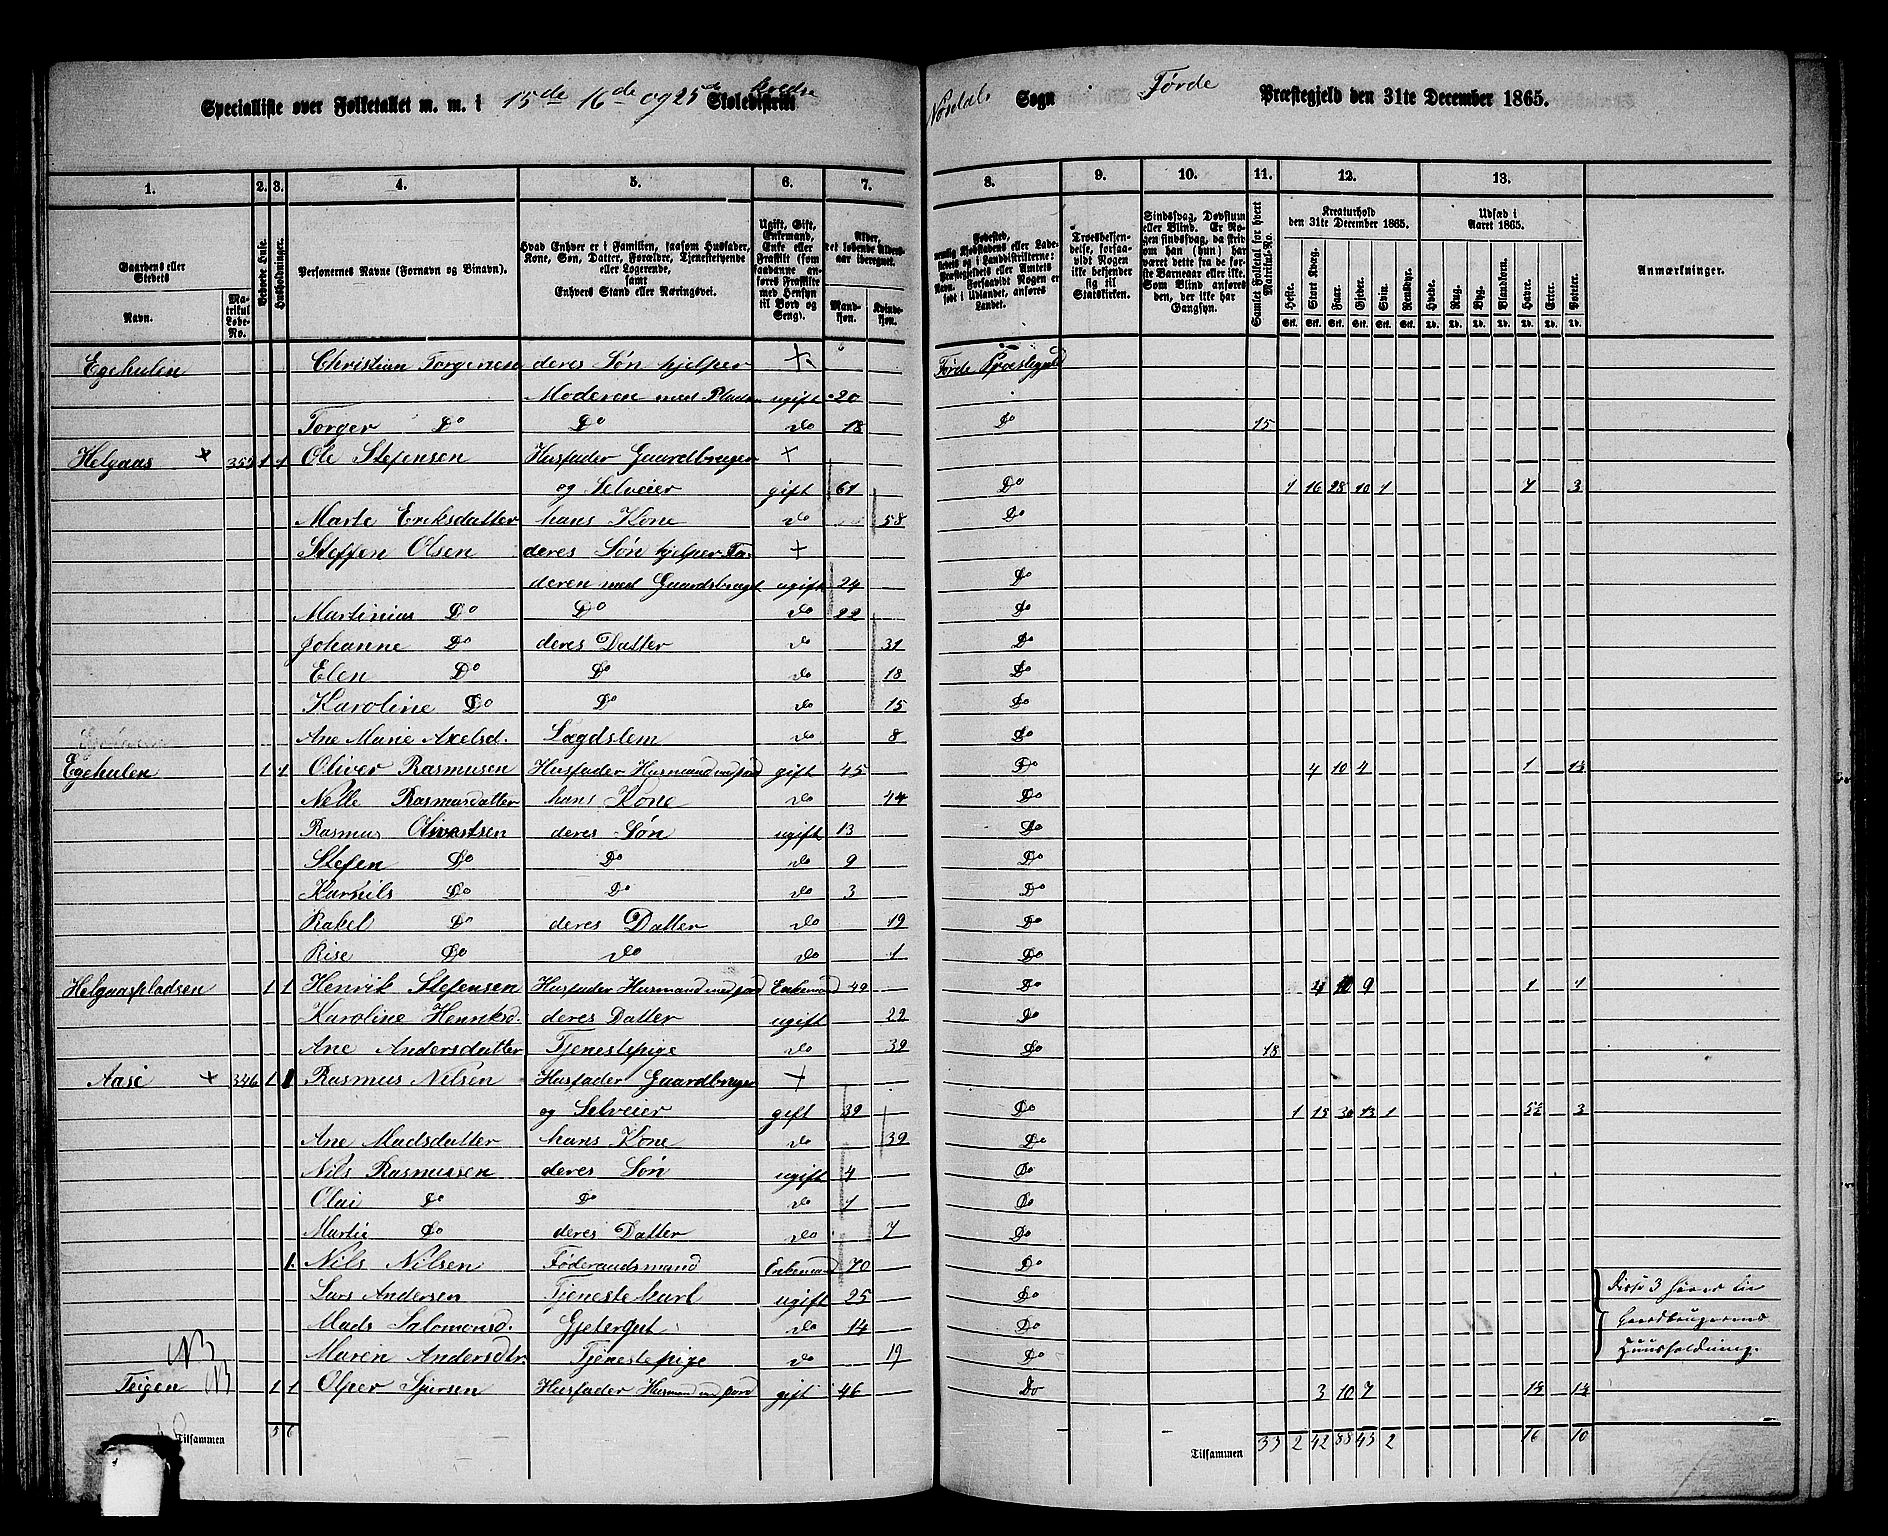 Specialliste over Folketallet m. m. i 15de 16de og 25de Kredse Skoledistrikt
Sogn i Førde Præstegjeld den 31te December 1865.
1. 2. 3. 4. 5. 6. 7. 8. 9. 10. 11. 12. 13.
Gaardens eller Stedets
Navn.
Matrikul Løbe-No.
Beboede Huse.
Husholdninger.
Personernes Navne (Fornavn og Binavn).
Hvad Enhver er i Familien, saasom Husfader, Kone, Søn, Datter, Forældre, Tjenestetyende eller Logerende, samt Enhvers Stand eller Næringsvei.
Ugift, Gift, Enkemand, Enke eller Fraskilt (som saadanne anføres Fraskilte med Hensyn til Bord og Seng).
Alder, det løbende Alders-aar iberegnet.
Mandkjøn. Kvindekjøn.
Fødested,
Troesbekjendelse, forsaavidt Nogen ikke bekjender sig til Statskirken.
Sindssvag, Døvstum eller Blind. Er Nogen sindssvag, da skrives om han (hun) har været dette fra de første Barneaar eller ikke. Som Blind anføres den, der ikke har Gangsyn.
Samlet Folketal for hvert Matrikul-No.
Kreaturhold den 31te December 1865.
Heste. Stort Kvæg. Faar. Gjeder. Svin. Rensdyr.
Udsæd i Aaret 1865.
Hvede. Rug. Byg. Blandkorn. Havre. Erter. Poteter.
Anmærkninger.
Egehulen Christian Torgersen deres Søn hjelper + Førde Præstegjeld
Moderen med Pladsen ugift 20
Torger Do Do do 18 Do 15
Helgaas + 355 1 1 Ole Stefensen Husfader Gaardbruger +
og Selveier gift 61 Do 1 16 28 10 1 7 3
Marte Eriksdatter hans Kone do 58 Do
Steffen Olsen deres Søn hjelper Fa- +
deren med Gaardsbruget ugift 24 Do
Martinius Do Do do 22 Do
Johanne Do deres Datter do 31 Do
Elen Do Do do 18 Do
Karoline Do Do do 15 Do
Ane Marie Axelsd. Lægdslem do 8 Do
Egehulen 1 1 Oliver Rasmusen Husfader Husmand med jord gift 45 Do 4 10 4 1
Nelle Rasmusdatter hans Kone Do 44 Do
Rasmus Olivertsen deres Søn ugift 13 Do
Stefen Do Do do 9 Do
Karnils Do Do do 3 Do
Rakel Do deres Datter do 19 Do
Rise Do do do 1 Do
Helgaaspladsen 1 1 Henrik Stefensen Husfader Husmand med jord Enkemand 49 Do 4 9 1 1
Karoline Henriksd. deres Datter ugift 22 Do
Ane Andersdatter Tjenestepige do 39 Do 18
Aase + 346 1 1 Rasmus Nilsen Husfader Gaardbruger +
og Selveier gift 39 Do 1 15 30 13 1 5½ 3
Ane Madsdatter hans Kone do 39 Do
Nils Rasmussen deres Søn ugift 4 Do
Olai Do Do do 1 Do
Martie Do deres Datter do 7 Do
1. Nils Nilsen Føderaadsmand Enkemand 70 Do
Lars Andersen Tjenestekarl ugift 25 Do Disse 3 hører til
Mads Salomonsd. Gjetergut do 14 Do Gaardbrugerens
Maren Andersdtr. Tjenestepige do 19 Do Huusholdning.
NB
Teigen NB 1 1 Olper Sjursen Husfader Husmand m jord gift 46 Do 3 10 7
Tilsammen 5 6 Tilsammen 33 2 42 88 43 2 16 10